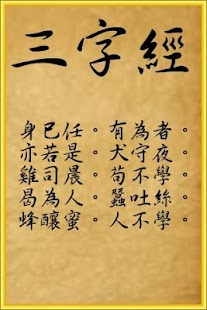 三字經
身已任。有為者
亦若是。犬守夜
雞司晨。苟不學
曷為人。蠶吐絲
蜂釀蜜。人不學